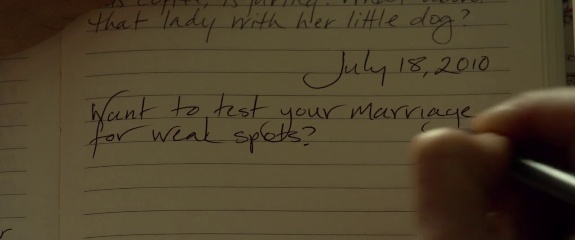 that lady with her little dog?
July 18, 2010
Want to test your marriage
for weak spots?